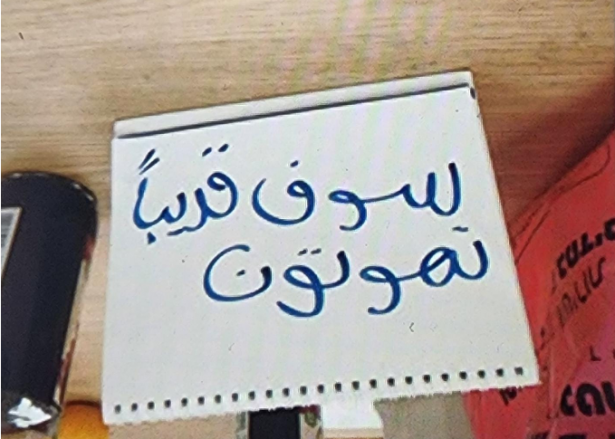 سوف قريباً
تموتون